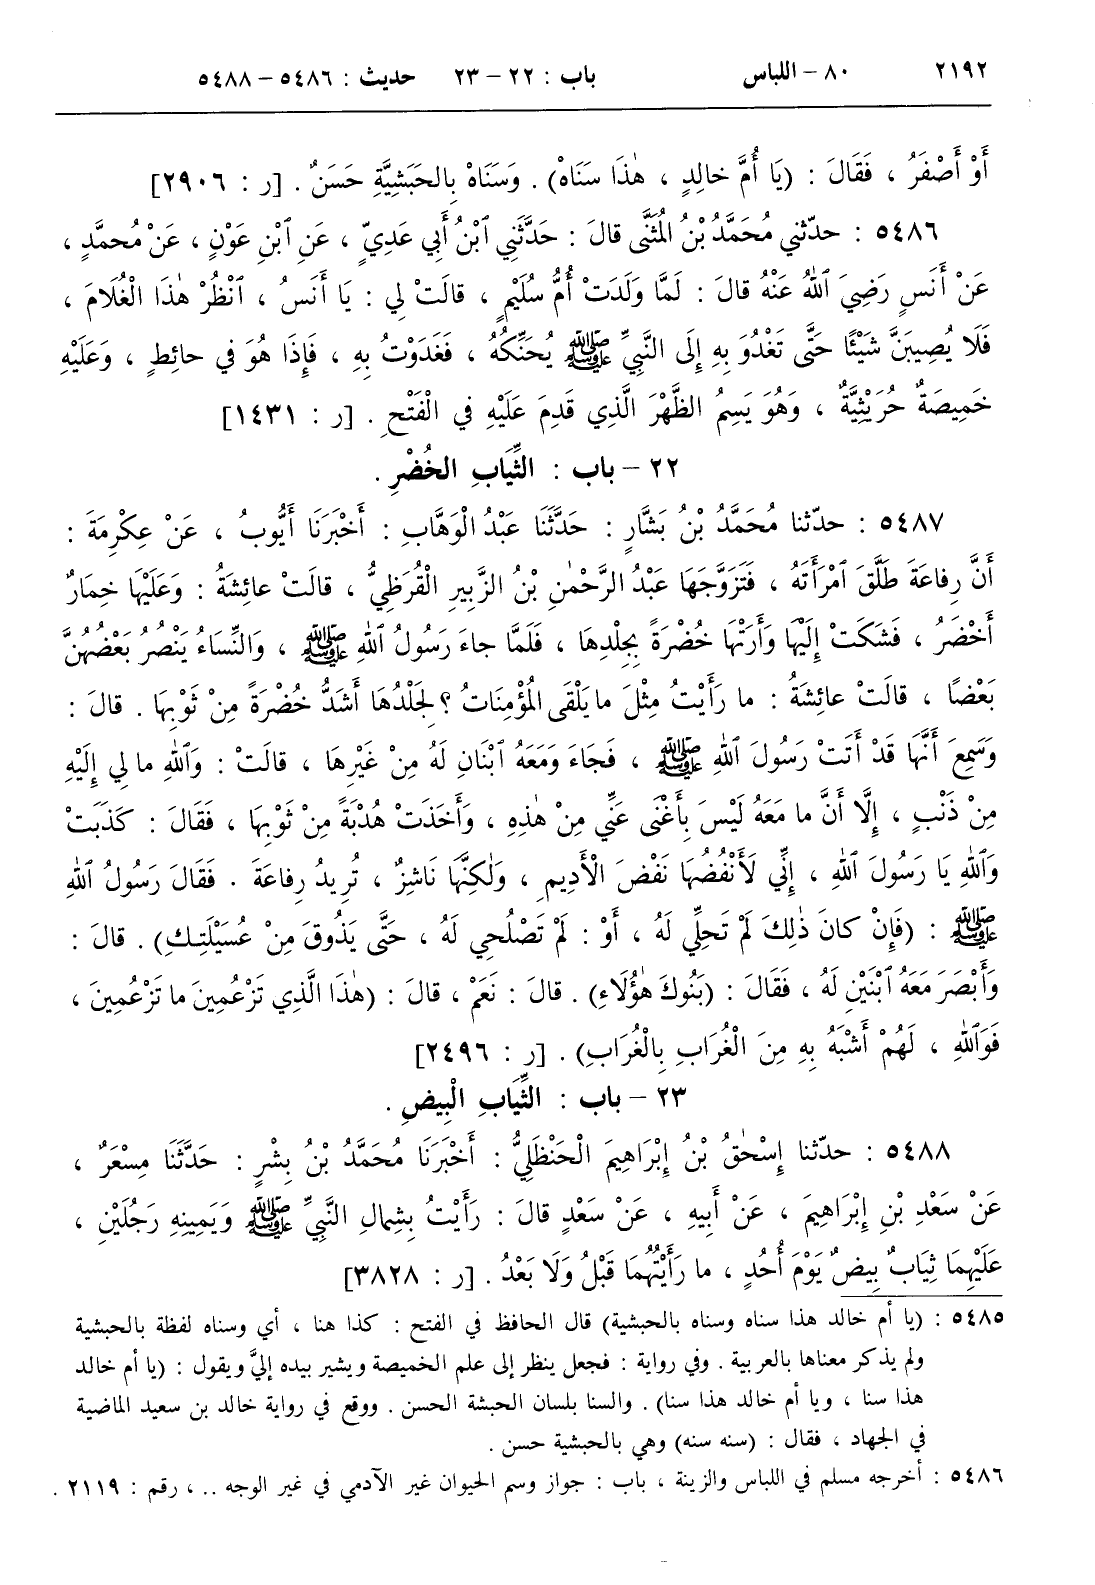 ٢١٩٢ ٨٠ – اللباس باب : ٢٢ – ٢٣ حديث : ٥٤٨٦ – ٥٤٨٨
أَوْ أَصْفَرُ ، فَقَالَ : (يَا أُمَّ خالِدٍ ، هٰذَا سَنَاهْ) . وَسَنَاهْ بِالحَبَشِيَّةِ حَسَنٌ . [ر : ٢٩٠٦]
٥٤٨٦ : حدّثني مُحَمَّدُ بْنُ المُثَنَّى قالَ : حَدَّثَنِي ٱبْنُ أَبِي عَدِيٍّ ، عَنِ ٱبْنِ عَوْنٍ ، عَنْ مُحمَّدٍ ،
عَنْ أَنَسٍ رَضِيَ ٱللهُ عَنْهُ قالَ : لَمَّا وَلَدَتْ أُمُّ سُلَيْمٍ ، قالَتْ لِي : يَا أَنَسُ ، ٱنْظُرْ هٰذَا الْغُلَامَ ،
فَلَا يُصِيبَنَّ شَيْئًا حَتَّى تَغْدُوَ بِهِ إِلَى النَّبِيِّ ﷺ يُحَنِّكُهُ ، فَغَدَوْتُ بِهِ ، فَإِذَا هُوَ فِي حائِطٍ ، وَعَلَيْهِ
خَمِيصَةٌ حُرَيْثِيَّةٌ ، وَهُوَ يَسِمُ الظَّهْرَ الَّذِي قَدِمَ عَلَيْهِ فِي الْفَتْحِ . [ر : ١٤٣١]
٢٢ – باب : الثِّيَابِ الخُضْرِ .
٥٤٨٧ : حدّثنا مُحَمَّدُ بْنُ بَشَّارٍ : حَدَّثَنَا عَبْدُ الْوَهَّابِ : أَخْبَرَنَا أَيُّوبُ ، عَنْ عِكْرِمَةَ :
أَنَّ رِفاعَةَ طَلَّقَ ٱمْرَأَتَهُ ، فَتَزَوَّجَهَا عَبْدُ الرَّحْمٰنِ بْنُ الزَّبِيرِ الْقُرَظِيُّ ، قالَتْ عائِشَةُ : وَعَلَيْهَا خِمَارٌ
أَخْضَرُ ، فَشَكَتْ إِلَيْهَا وَأَرَتْهَا خُضْرَةً بِجِلْدِهَا ، فَلَمَّا جاءَ رَسُولُ ٱللهِ ﷺ ، وَالنِّسَاءُ يَنْصُرُ بَعْضُهُنَّ
بَعْضًا ، قالَتْ عائِشَةُ : ما رَأَيْتُ مِثْلَ ما يَلْقَى المُؤْمِنَاتُ ؟ لَجِلْدُهَا أَشَدُّ خُضْرَةً مِنْ ثَوْبِهَا . قالَ :
وَسَمِعَ أَنَّهَا قَدْ أَتَتْ رَسُولَ ٱللهِ ﷺ ، فَجَاءَ وَمَعَهُ ٱبْنَانِ لَهُ مِنْ غَيْرِهَا ، قالَتْ : وَٱللهِ ما لِي إِلَيْهِ
مِنْ ذَنْبٍ ، إِلَّا أَنَّ ما مَعَهُ لَيْسَ بِأَغْنَى عَنِّي مِنْ هٰذِهِ ، وَأَخَذَتْ هُدْبَةً مِنْ ثَوْبِهَا ، فَقَالَ : كَذَبَتْ
وَٱللهِ يَا رَسُولَ ٱللهِ ، إِنِّي لَأَنْفُضُهَا نَفْضَ الْأَدِيمِ ، وَلٰكِنَّهَا نَاشِزٌ ، تُرِيدُ رِفاعَةَ . فَقَالَ رَسُولُ ٱللهِ
ﷺ : (فَإِنْ كانَ ذٰلِكَ لَمْ تَحِلِّي لَهُ ، أَوْ : لَمْ تَصْلُحِي لَهُ ، حَتَّى يَذُوقَ مِنْ عُسَيْلَتِكِ) . قالَ :
وَأَبْصَرَ مَعَهُ ٱبْنَيْنِ لَهُ ، فَقَالَ : (بَنُوكَ هٰؤُلَاءِ) . قالَ : نَعَمْ ، قالَ : (هٰذَا الَّذِي تَزْعُمِينَ ما تَزْعُمِينَ ،
فَوَٱللهِ ، لَهُمْ أَشْبَهُ بِهِ مِنَ الْغُرَابِ بِالْغُرَابِ) . [ر : ٢٤٩٦]
٢٣ – باب : الثِّيَابِ الْبِيضِ .
٥٤٨٨ : حدّثنا إِسْحٰقُ بْنُ إِبْرَاهِيمَ الْحَنْظَلِيُّ : أَخْبَرَنَا مُحَمَّدُ بْنُ بِشْرٍ : حَدَّثَنَا مِسْعَرٌ ،
عَنْ سَعْدِ بْنِ إِبْرَاهِيمَ ، عَنْ أَبِيهِ ، عَنْ سَعْدٍ قالَ : رَأَيْتُ بِشِمالِ النَّبِيِّ ﷺ وَيَمِينِهِ رَجُلَيْنِ ،
عَلَيْهِمَا ثِيَابٌ بِيضٌ يَوْمَ أُحُدٍ ، ما رَأَيْتُهُمَا قَبْلُ وَلَا بَعْدُ . [ر : ٣٨٢٨]
٥٤٨٥ : (يا أم خالد هذا سناه وسناه بالحبشية) قال الحافظ في الفتح : كذا هنا ، أي وسناه لفظة بالحبشية
ولم يذكر معناها بالعربية . وفي رواية : فجعل ينظر إلى علم الخميصة ويشير بيده إليَّ ويقول : (يا أم خالد
هذا سنا ، ويا أم خالد هذا سنا) . والسنا بلسان الحبشة الحسن . ووقع في رواية خالد بن سعيد الماضية
في الجهاد ، فقال : (سنه سنه) وهي بالحبشية حسن .
٥٤٨٦ : أخرجه مسلم في اللباس والزينة ، باب : جواز وسم الحيوان غير الآدمي في غير الوجه .. ، رقم : ٢١١٩ .